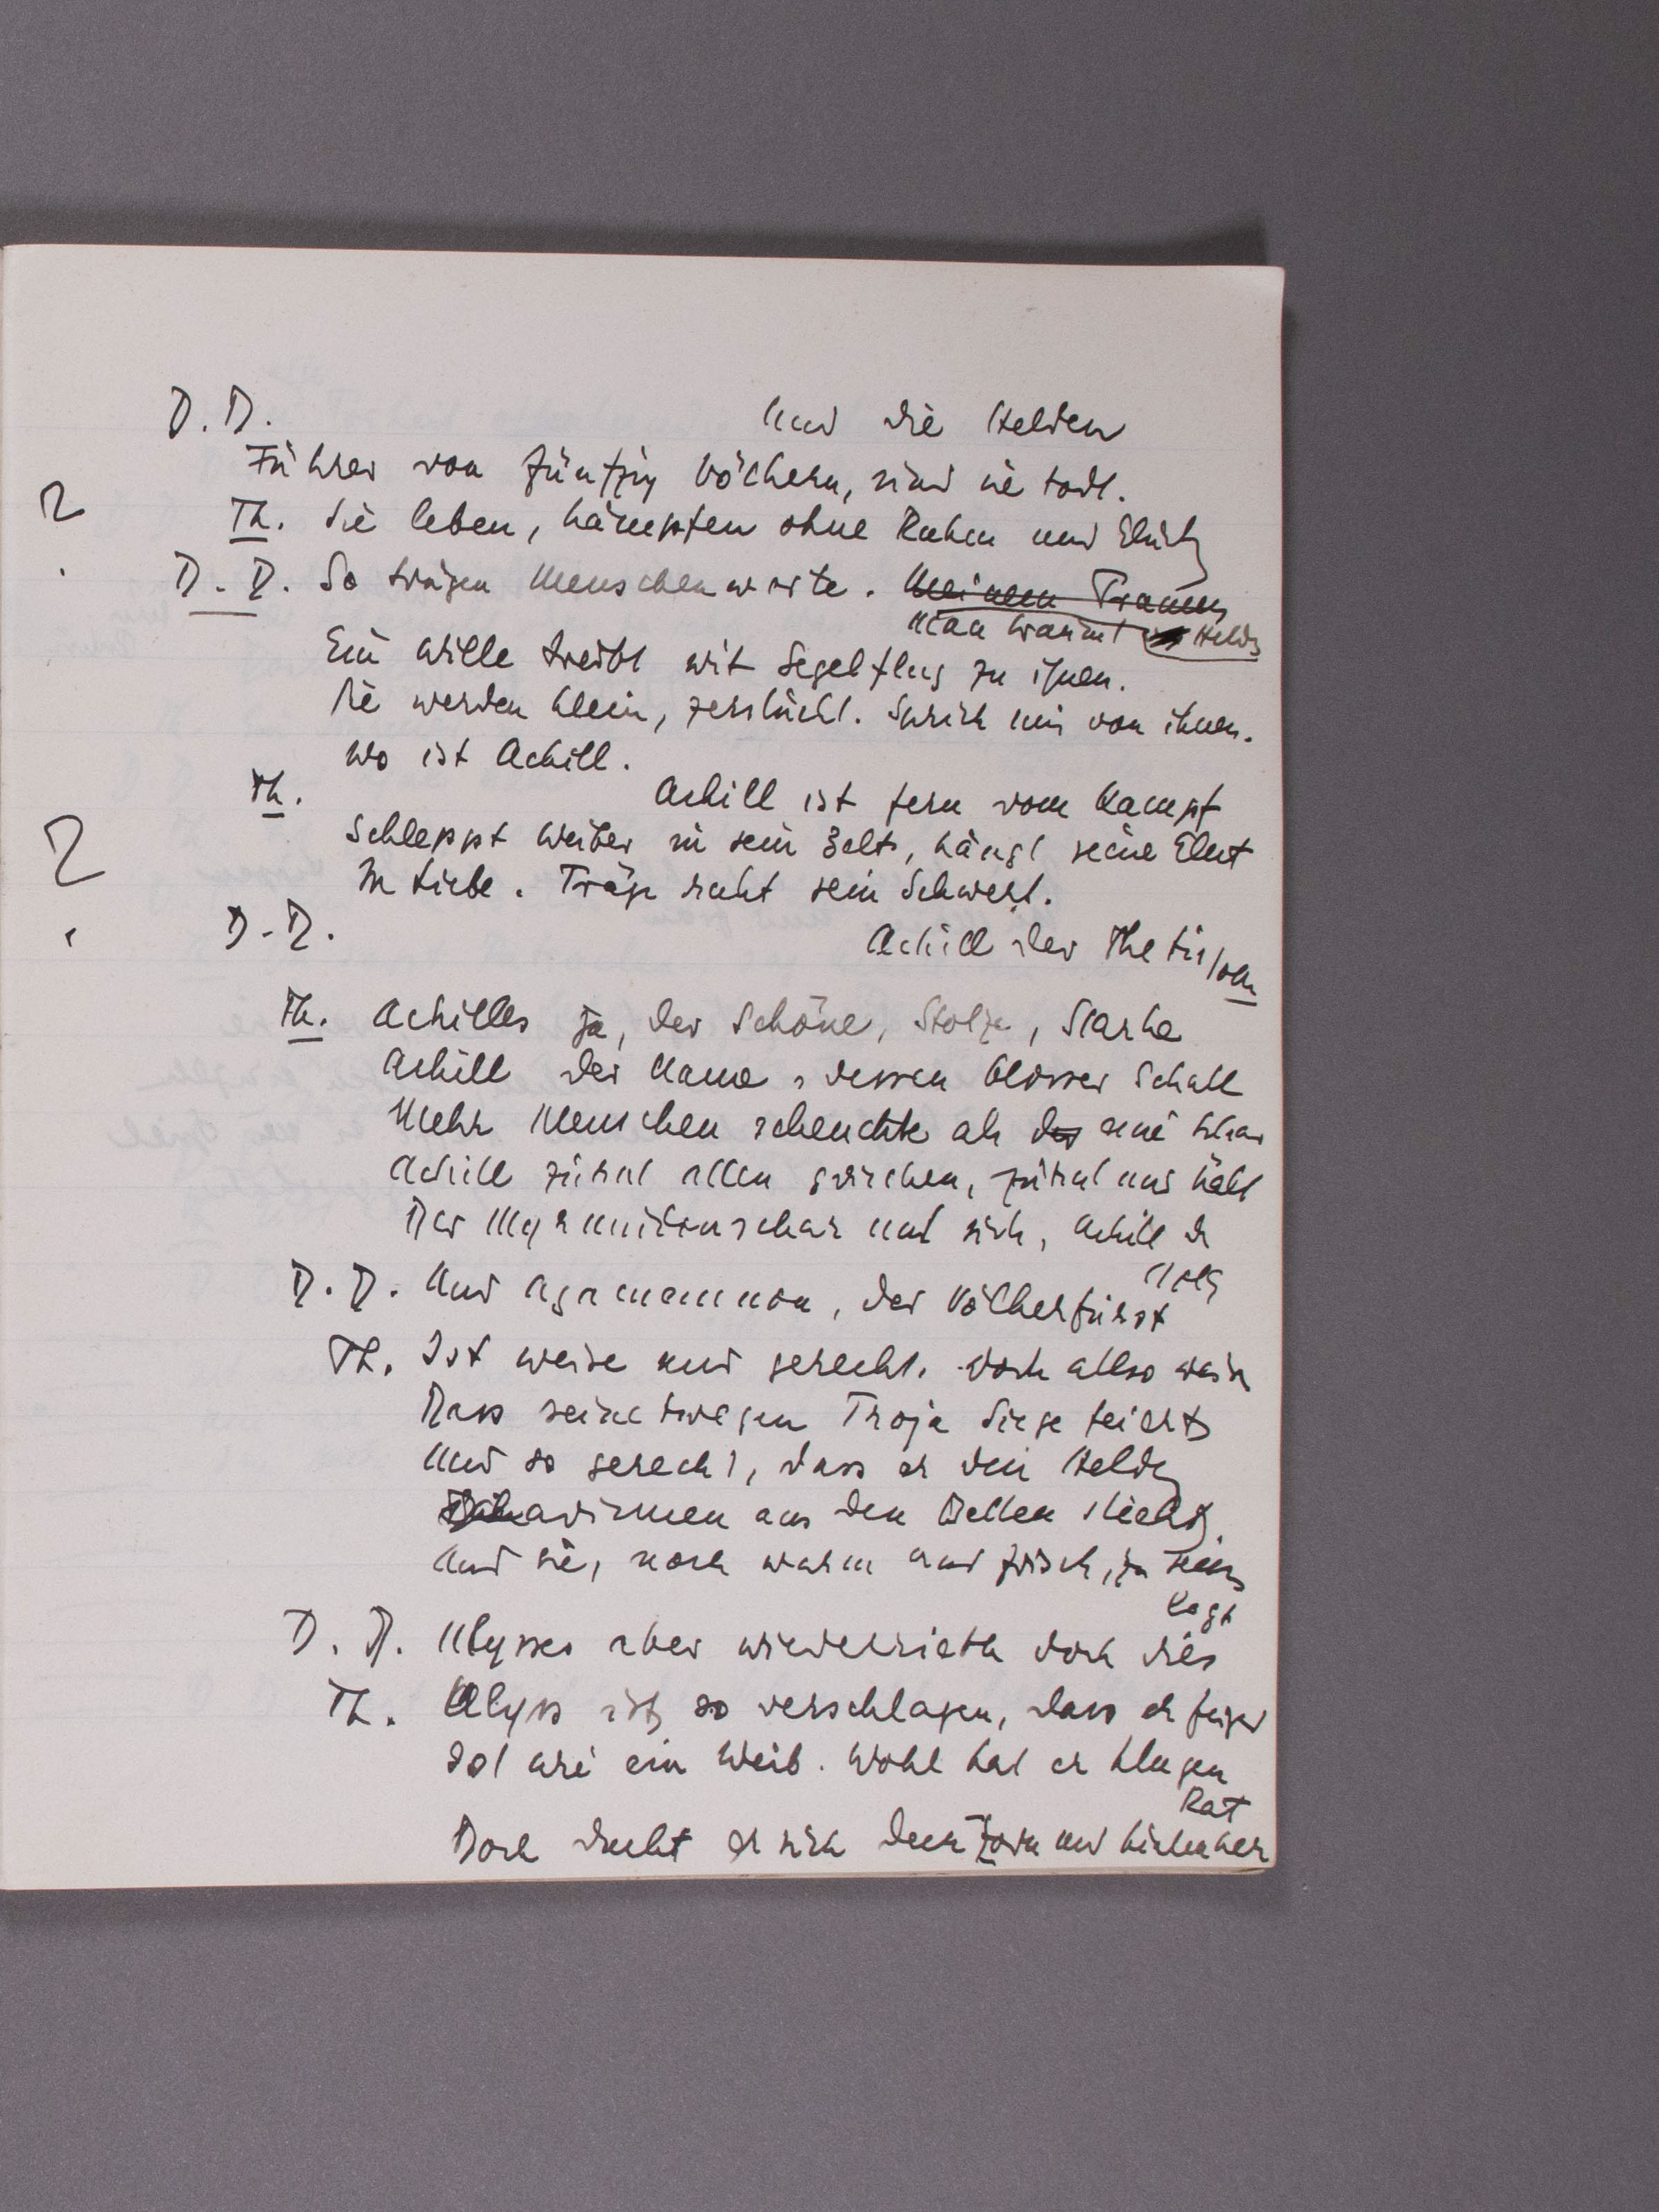 D. D. Und die Helden
Führer von fünfzig Völkern, sind sie todt.
?
Th. Sie leben, kämpfen ohne Ruhm und Glück
D. D. So trügen Menschenworte. Meinem Traum
Man träumt Helden
Ein Wille treibt mit Segelflug zu ihnen.
Sie werden klein, zerstückt. Sprich mir von ihnen.
Wo ist Achill.
Th. Achill ist fern vom Kampf
?
Schleppt Weiber in sein Zelt, hängt seine Glut
In Liebe. Träge ruht sein Schwert.
D. D. Achill der Thetis sohn
Th. Achilles ja, der Schöne, Stolze, Starke
Achill der Name, dessen blosser Schall
Mehr Menschen scheuchte als der seine Schar
Achill zürnt allen Griechen, zürnt und hält
Der Myrmidonschar und sich, Achill ist
stolz
D. D. Und Agamemnon, der Völkerfürst
Th. Ist weise und gerecht. Doch allso weise
Dass seinetwegen Troja Siege feiert
Und so gerecht, dass er den Helden
aus den Betten stiehlt
Und sie, noch warm und frisch, in seins
legt
D. D. Ulysses aber wiederrieth doch dies
Th. Ulyss ist so verschlagen, dass er feiger
Ist wie ein Weib. Wohl hat er klugen
Rat
Doch duckt er sich dem Zorn und